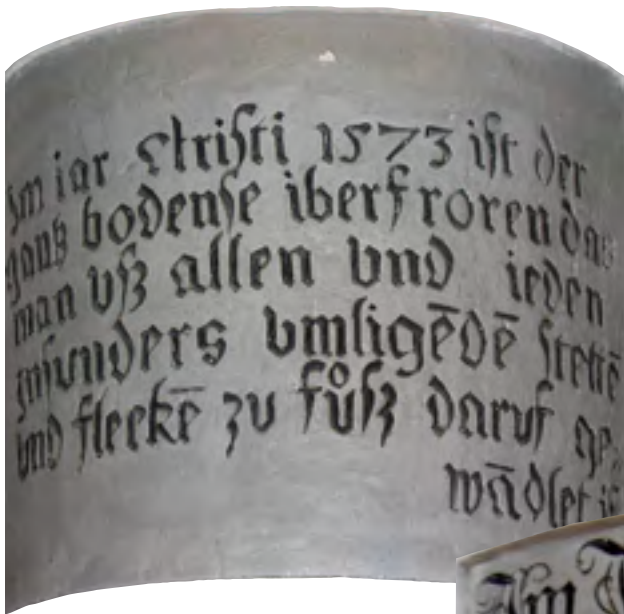 Im iar christi 1573 ist der
gantz bodense iberfroren das
man vß allen vnd ieden
insunders vmligēdē stette
vnd fleckē zu fůß daruf ge
wādlet is
Im